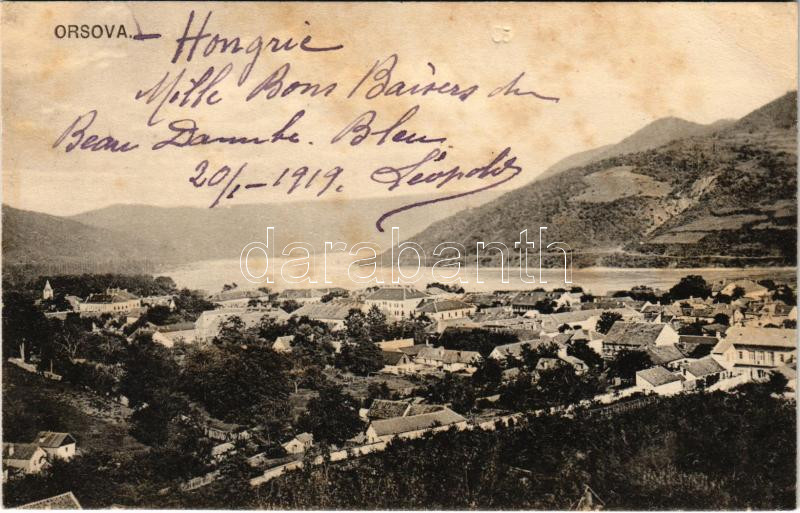 ORSOVA. - Hongrie
Mille Bons Baisers du
Beau Danube. Bleu
20/1-1919. Léopold
darabanth